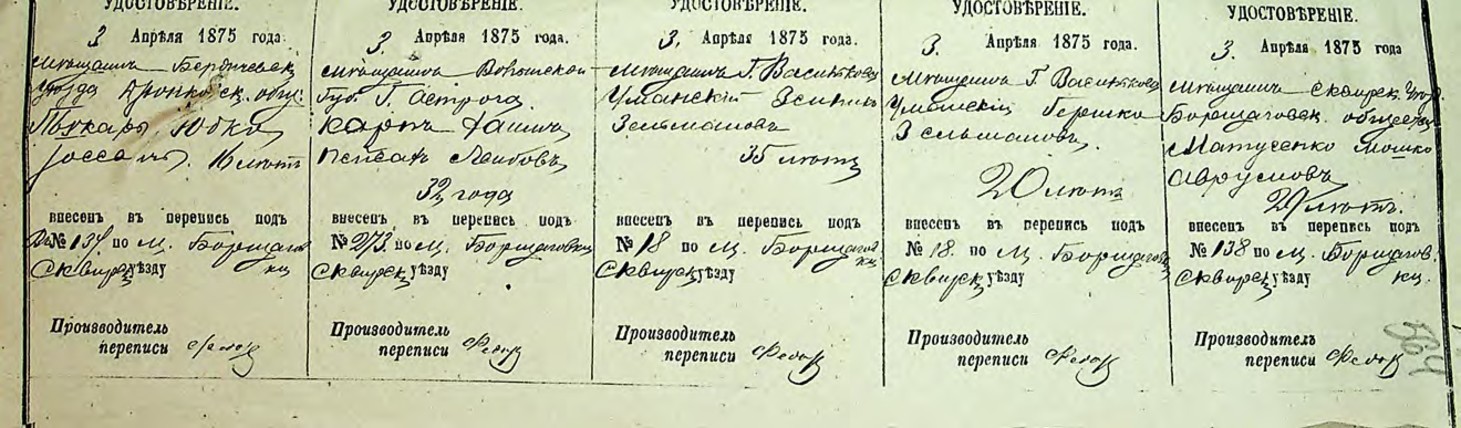 УДОСТОВѢРЕНІЕ.
3 Апрѣля 1875 года.
Мѣщанинъ Бердичевск.
Уѣзда
Юдко
внесенъ въ перепись подъ
№ 134 по м. Борщагов
ки
Сквирск. уѣзду
Производитель
переписи
УДОСТОВѢРЕНІЕ.
3. Апрѣля 1875 года.
Мѣщанинъ Волынской
Губ. Г. Острога.
Лейбовъ
32 года
внесенъ въ перепись подъ
№ 273 по м. Борщаговки
Сквирск. уѣзду
Производитель
переписи
УДОСТОВѢРЕНІЕ.
3. Апрѣля 1875 года.
Мѣщанинъ Г. Василькова
Уманскій
Зельмановъ
35 лѣтъ
внесенъ въ перепись подъ
№ 18 по м. Борщагов
ки
Сквирск. уѣзду
Производитель
переписи
УДОСТОВѢРЕНІЕ.
3. Апрѣля 1875 года.
Мѣщанинъ Г. Василькова
Уманскій Гершко
Зельмановъ.
20 лѣтъ
внесенъ въ перепись подъ
№ 18. по м. Борщагов
Сквирск. уѣзду
Производитель
переписи
УДОСТОВѢРЕНІЕ.
3 Апрѣля 1875 года
Мѣщанинъ Сквирск. Уѣзд.
Борщаговск. общества
Матусенко Мошко
Аврумовъ
лѣтъ.
внесенъ въ перепись подъ
№ 138 по м. Борщагов
ки.
Сквирск. уѣзду
Производитель
переписи
564